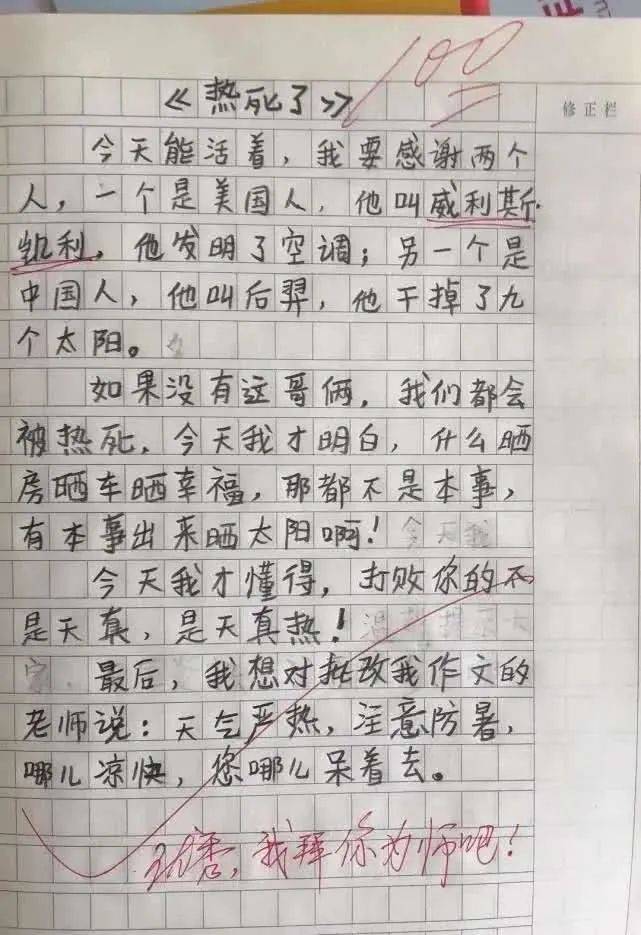 100
《热死了》
修正栏
今天能活着，我要感谢两个
人，一个是美国人，他叫威利斯·
凯利，他发明了空调；另一个是
中国人，他叫后羿，他干掉了九
个太阳。
如果没有这哥俩，我们都会
被热死，今天我才明白，什么晒
房晒车晒幸福，那都不是本事，
有本事出来晒太阳啊！今天我
今天我才懂得，打败你的不
是天真，是天真热！
最后，我想对批改我作文的
老师说：天气严热，注意防暑，
哪儿凉快，您哪儿呆着去。
优秀，我拜你为师吧！